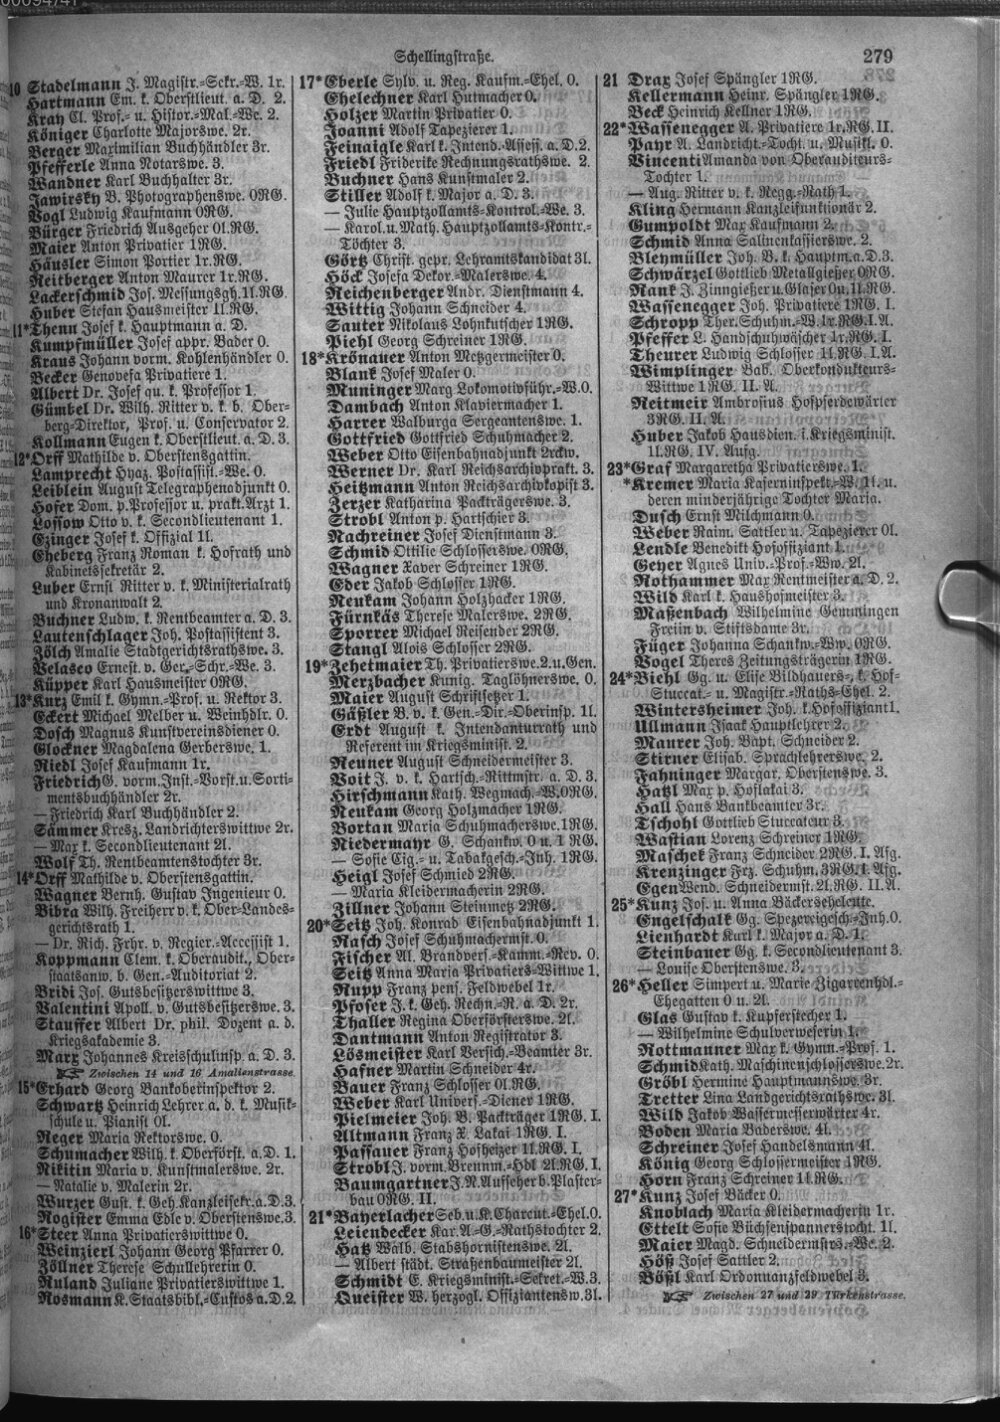 Schellingstraße.
279
10 Stadelmann J. Magistr.-Sekr.-W. 1r.
Hartmann Em. k. Oberstlieut. a. D. 2.
Kray Cl. Prof.- u. Histor.-Mal.-We. 2.
Königer Charlotte Majorswe. 2r.
Berger Maximilian Buchhändler 3r.
Pfefferle Anna Notarswe. 3.
Wandner Karl Buchhalter 3r.
Jawirsky B. Photographenswe. 0RG.
Vogl Ludwig Kaufmann 0RG.
Bürger Friedrich Ausgeher 0l.RG.
Maier Anton Privatier 1RG.
Häusler Simon Portier 1r.RG.
Reitberger Anton Maurer 1r.RG.
Lackerschmid Jos. Messungsgh. 1l.RG.
Huber Stefan Hausmeister 1l.RG.
11*Thenn Josef k. Hauptmann a. D.
Kumpfmüller Josef appr. Bader 0.
Kraus Johann vorm. Kohlenhändler 0.
Becker Genovefa Privatiere 1.
Albert Dr. Josef qu. k. Professor 1.
Gümbel Dr. Wilh. Ritter v. k. b. Ober-
berg-Direktor, Prof. u. Conservator 2.
Kollmann Eugen k. Oberstlieut. a. D. 3.
12*Orff Mathilde v. Oberstensgattin.
Lamprecht Hyaz. Postassist.-We. 0.
Leiblein August Telegraphenadjunkt 0.
Hofer Dom. p. Professor u. prakt. Arzt 1.
Lossow Otto v. k. Secondlieutenant 1.
Ezinger Josef k. Offizial 1l.
Eheberg Franz Roman k. Hofrath und
Kabinetssekretär 2.
Luber Ernst Ritter v. k. Ministerialrath
und Kronanwalt 2.
Buchner Ludw. k. Rentbeamter a. D. 3.
Lautenschlager Joh. Postassistent 3.
Zölch Amalie Stadtgerichtsrathswe. 3.
Velasco Ernest. v. Ger.-Schr.-We. 3.
Küpper Karl Hausmeister 0RG.
13*Kurz Emil k. Gymn.-Prof. u. Rektor 3.
Eckert Michael Melber u. Weinhdlr. 0.
Dosch Magnus Kunstvereinsdiener 0.
Glockner Magdalena Gerberswe. 1.
Riedl Josef Kaufmann 1r.
Friedrich G. vorm. Inst.-Vorst. u. Sorti-
mentsbuchhändler 2r.
— Friedrich Karl Buchhändler 2.
Sämmer Kresz. Landrichterswittwe 2r.
— Max k. Secondlieutenant 2l.
Wolf Th. Rentbeamtenstochter 3r.
14*Orff Mathilde v. Oberstensgattin.
Wagner Bernh. Gustav Ingenieur 0.
Bibra Wilh. Freiherr v. k. Ober-Landes-
gerichtsrath 1.
— Dr. Rich. Frhr. v. Regier.-Accessist 1.
Koppmann Clem. k. Oberaudit., Ober-
staatsanw. b. Gen.-Auditoriat 2.
Bridi Jos. Gutsbesitzerswittwe 3.
Valentini Apoll. v. Gutsbesitzerswe. 3.
Stauffer Albert Dr. phil. Dozent a. d.
Kriegsakademie 3.
Marx Johannes Kreisschulinsp. a. D. 3.
☞ Zwischen 14 und 16 Amalienstrasse.
15*Erhard Georg Bankobekinspektor 2.
Schwartz Heinrich Lehrer a. d. k. Musik-
schule u. Pianist 0l.
Reger Maria Rektorswe. 0.
Schumacher Wilh. k. Oberförst. a. D. 1.
Nikitin Maria v. Kunstmalerswe. 2r.
— Natalie v. Malerin 2r.
Wurzer Gust. k. Geh. Kanzleisekr. a. D. 3.
Rogister Emma Edle v. Oberstenswe. 3.
16*Steer Anna Privatierswittwe 0.
Weinzierl Johann Georg Pfarrer 0.
Zöllner Therese Schullehrerin 0.
Ruland Juliane Privatierswittwe 1.
Rosmann K. Staatsbibl.-Custos a. D. 2.
17*Eberle Sylv. u. Reg. Kaufm.-Ehel. 0.
Ehelechner Karl Hutmacher 0.
Holzer Martin Privatier 0.
Joanni Adolf Tapezierer 1.
Feinaigle Karl k. Intend.-Assess. a. D. 2.
Friedl Friderike Rechnungsrathswe. 2.
Buchner Hans Kunstmaler 2.
Stiller Adolf k. Major a. D. 3.
— Julie Hauptzollamts-Kontrol.-We. 3.
— Karol. u. Math. Hauptzollamts-Kontr.-
Töchter 3.
Görtz Christ. gepr. Lehramtskandidat 3l.
Höck Josefa Dekor.-Malerswe. 4.
Reichenberger Andr. Dienstmann 4.
Wittig Johann Schneider 4.
Sauter Nikolaus Lohnkutscher 1RG.
Piehl Georg Schreiner 1RG.
18*Krönauer Anton Metzgermeister 0.
Blank Josef Maler 0.
Muninger Marg Lokomotivführ.-W. 0.
Dambach Anton Klaviermacher 1.
Harrer Walburga Sergeantenswe. 1.
Gottfried Gottfried Schuhmacher 2.
Weber Otto Eisenbahnadjunkt 2rckw.
Werner Dr. Karl Reichsarchivprakt. 3.
Heitzmann Anton Reichsarchivkopist 3.
Zerzer Katharina Packträgerswe. 3.
Strobl Anton p. Hartschier 3.
Nachreiner Josef Dienstmann 3.
Schmid Ottilie Schlosserswe. 0RG.
Wagner Xaver Schreiner 1RG.
Eder Jakob Schlosser 1RG.
Neukam Johann Holzhacker 1RG.
Fürnkäs Therese Malerswe. 2RG.
Sporrer Michael Reisender 2RG.
Stangl Alois Schlosser 2RG.
19*Zehetmaier Th. Privatierswe. 2. u. Gen.
Merzbacher Kunig. Taglöhnerswe. 0.
Maier August Schriftsetzer 1.
Gäßler B. v. k. Gen.-Dir.-Oberinsp. 1l.
Erdt August k. Intendanturrath und
Referent im Kriegsminist. 2.
Neuner August Schneidermeister 3.
Voit J. v. k. Hartsch.-Rittmstr. a. D. 3.
Hirschmann Kath. Wegmach.-W. 0RG.
Neukam Georg Holzmacher 1RG.
Vortan Maria Schuhmacherswe. 1RG.
Niedermayr G. Schankw. 0 u. 1 RG.
— Sofie Cig.- u. Tabakgesch.-Inh. 1RG.
Heigl Josef Schmied 2RG.
— Maria Kleidermacherin 2RG.
Zillner Johann Steinmetz 2RG.
20*Seitz Joh. Konrad Eisenbahnadjunkt 1.
Rasch Josef Schuhmachermst. 0.
Fischer Al. Brandvers.-Kamm.-Rev. 0.
Seitz Anna Maria Privatiers-Wittwe 1.
Rupp Franz pens. Feldwebel 1r.
Pfoser J. k. Geh. Rechn.-R. a. D. 2r.
Thaller Regina Oberförsterswe. 2l.
Dantmann Anton Registrator 3.
Lösmeister Karl Versich.-Beamter 3r.
Hafner Martin Schneider 4r.
Bauer Franz Schlosser 0l.RG.
Weber Karl Univers.-Diener 1RG.
Pielmeier Joh. B. Packträger 1RG. I.
Altmann Franz X. Lakai 1RG. I.
Passauer Franz Hofheizer 1l.RG. I.
Strobl J. vorm. Brennm.-Hdl 2l.RG. I.
Baumgartner J. N. Aufseher b. Plaster-
bau 0RG. II.
21*Bayerlacher Seb. u. K. Charcut.-Ehel. 0.
Leiendecker Kar. A.-G.-Rathstochter 2.
Hatz Walb. Stabshornistenswe. 2l.
— Albert städt. Straßenbaumeister 2l.
Schmidt C. Kriegsminist.-Sekret.-W. 3.
Queister W. herzogl. Offiziantensw. 3l.
21 Drax Josef Spängler 1RG.
Kellermann Heinr. Spängler 1RG.
Beck Heinrich Kellner 1RG.
22*Wassenegger A. Privatiere 1r.RG. II.
Payr A. Landricht.-Tocht. u. Musikl. 0.
Vincenti Amanda von Oberauditeurs-
Tochter 1.
— Aug. Ritter v. k. Regg.-Rath 1.
Kling Hermann Kanzleifunktionär 2.
Gumpoldt Max Kaufmann 2.
Schmid Anna Salinenkassierswe. 2.
Bleymüller Joh. B. k. Hauptm. a. D. 3.
Schwärzel Gottlieb Metallgießer 0RG.
Rank J. Zinngießer u. Glaser 0 u. 1l.RG.
Wassenegger Joh. Privatiere 1RG. I.
Schropp Ther. Schuhm.-W. 1r.RG. I. A.
Pfeffer L. Handschuhwäscher 1r.RG. I.
Theurer Ludwig Schlosser 1l.RG. I. A.
Wimplinger Bab. Oberkondukteurs-
Wittwe 1RG. II. A.
Reitmeir Ambrosius Hofpferdewärter
3RG. II. A.
Huber Jakob Hausdien. i. Kriegsminist.
1l.RG. IV. Aufg.
23*Graf Margaretha Privatierswe. 1.
*Kremer Maria Kaserninspekt.-W. 1l. u.
deren minderjährige Tochter Maria.
Dusch Ernst Milchmann 0.
Weber Raim. Sattler u. Tapezierer 0l.
Lendle Benedikt Hofoffiziant 1.
Geyer Agnes Univ.-Prof.-Ww. 2l.
Rothammer Max Rentmeister a. D. 2.
Wild Karl k. Haushofmeister 3.
Maßenbach Wilhelmine Gemmingen
Freiin v. Stiftsdame 3r.
Füger Johanna Schankw.-Ww. 0RG.
Vogel Theres Zeitungsträgerin 1RG.
24*Biehl Gg. u. Elise Bildhauers-, k. Hof-
Stuccat.- u. Magistr.-Raths-Ehel. 2.
Wintersheimer Joh. k. Hofoffiziant 1.
Ullmann Isaak Hauptlehrer 2.
Maurer Joh. Bapt. Schneider 2.
Stirner Elisab. Sprachlehrerswe. 2.
Fahninger Margar. Oberstenswe. 3.
Hatzl Max p. Hoflakai 3.
Hall Hans Bankbeamter 3r.
Tschohl Gottlieb Stuccateur 3.
Wastian Lorenz Schreiner 1RG.
Maschek Franz Schneider 2RG. I. Afg.
Krenzinger Frz. Schuhm. 3RG. I. Afg.
Egen Wend. Schneidermst. 2l.RG. II. A.
25*Kunz Jos. u. Anna Bäckerseheleute.
Engelschalk Gg. Spezereigesch.-Inh. 0.
Lienhardt Karl k. Major a. D. 1.
Steinbauer Gg. k. Secondlieutenant 3.
— Louise Oberstenswe. 3.
26*Heller Simpert u. Marie Zigarrenhdl.-
Ehegatten 0 u. 2l.
Glas Gustav k. Kupferstecher 1.
— Wilhelmine Schulverweserin 1.
Rottmanner Max k. Gymn.-Prof. 1.
Schmid Kath. Maschinenschlosserswe. 2r.
Gröbl Hermine Hauptmannswe. 3r.
Tretter Lina Landgerichtsrathswe. 3l.
Wild Jakob Wassermesserwärter 4r.
Boden Maria Baderswe. 4l.
Schreiner Josef Handelsmann 4l.
König Georg Schlossermeister 1RG.
Horn Franz Schreiner 1l.RG.
27*Kunz Josef Bäcker 0.
Knoblach Maria Kleidermacherin 1r.
Ettelt Sofie Büchsenspannerstocht. 1l.
Maier Magd. Schneidermstrs.-We. 2.
Höß Josef Sattler 2.
Bößl Karl Ordonnanzfeldwebel 3.
☞ Zwischen 27 und 29 Türkenstrasse.